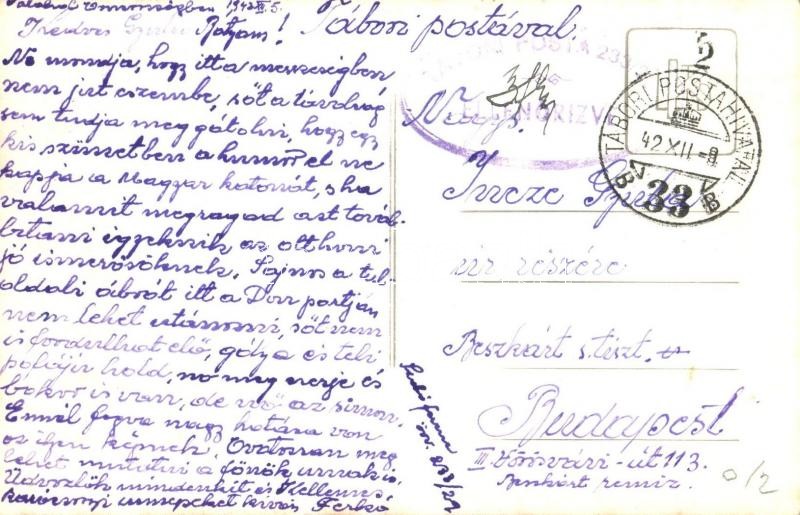 1942 XII 5.
Kedves Gyula Bátyám!
No mondja, hogy itt a messzeségben
nem jut eszembe, sőt a távolság
sem tudja meggátolni, hogy egy
kis szünetben a humor el ne
kapja a Magyar katonát, s ha
valamit megragad azt továb-
bítani igyekszik az otthoni
jó ismerősöknek. Sajnos a túl-
oldali ábrát itt a Don partján
nem lehet utánozni, sőt nem
is fordulhat elő, gólya és teli
hold, no meg és
bokor is van, de nő az nincs.
Ennél fogva nagy hatása van
az ilyen képnek. Óvatosan meg
lehet mutatni a főnök úrnak is.
Üdvözlök mindenkit és Kellemes
karácsonyi ünnepeket kíván Ferkó
Tábori postával.
TÁBORI POSTA 233
ELLENŐRIZVE
2
TÁBORI POSTAHIVATAL
42 XII -8
33
Nags.
Incze Gyula
úr részére
Beszkárt s. tiszt.
Budapest
III Vörösvári-út 113.
Beszkárt remiz.
233/21
0/2